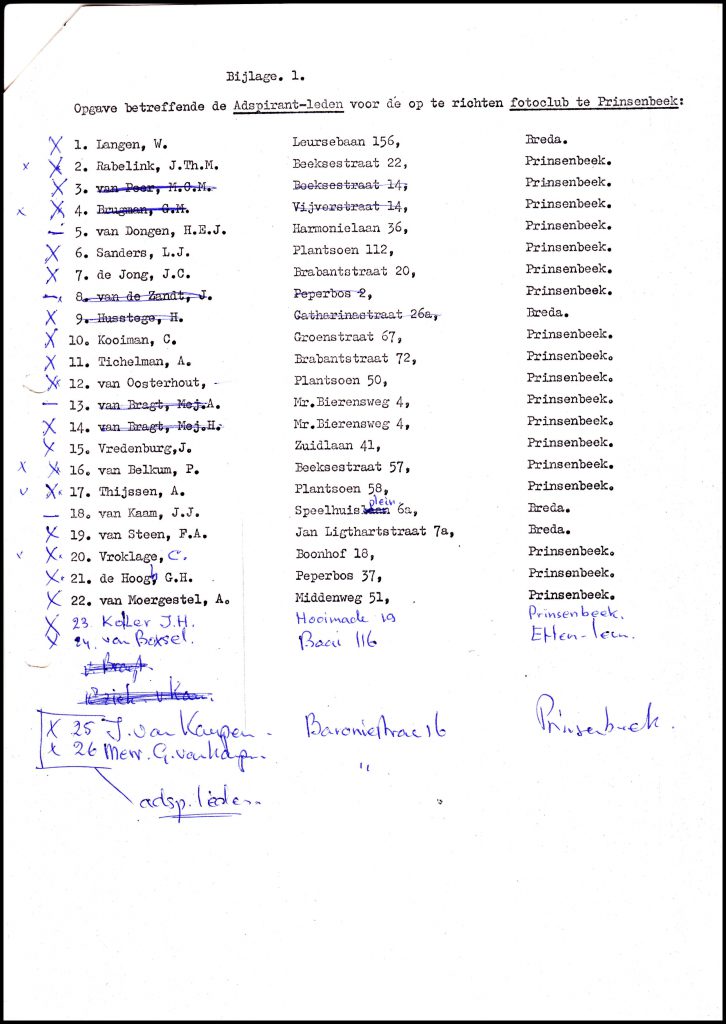 Bijlage. 1.
Opgave betreffende de Adspirant-leden voor de op te richten fotoclub te Prinsenbeek:
X 1. Langen, W. Leursebaan 156, Breda.
x X 2. Rabelink, J.Th.M. Beeksestraat 22, Prinsenbeek.
X 3. van Peer, M.C.M. Beeksestraat 14, Prinsenbeek.
x X 4. Brugman, G.M. Vijverstraat 14, Prinsenbeek.
– 5. van Dongen, H.E.J. Harmonielaan 36, Prinsenbeek.
X 6. Sanders, L.J. Plantsoen 112, Prinsenbeek.
X 7. de Jong, J.C. Brabantstraat 20, Prinsenbeek.
– 8. van de Zandt, J. Peperbos 2, Prinsenbeek.
X 9. Husstege, H. Catharinastraat 26a, Breda.
X 10. Kooiman, C. Groenstraat 67, Prinsenbeek.
X 11. Tichelman, A. Brabantstraat 72, Prinsenbeek.
X 12. van Oosterhout, - Plantsoen 50, Prinsenbeek.
– 13. van Bragt, Mej.A. Mr.Bierensweg 4, Prinsenbeek.
X 14. van Bragt, Mej.H. Mr.Bierensweg 4, Prinsenbeek.
X 15. Vredenburg,J. Zuidlaan 41, Prinsenbeek.
x X 16. van Belkum, P. Beeksestraat 57, Prinsenbeek.
v X 17. Thijssen, A. Plantsoen 58, Prinsenbeek.
– 18. van Kaam, J.J. Speelhuisplein 6a, Breda.
X 19. van Steen, F.A. Jan Ligthartstraat 7a, Breda.
v X 20. Vroklage, C. Boonhof 18, Prinsenbeek.
X 21. de Hoogh G.H. Peperbos 37, Prinsenbeek.
X 22. van Moergestel, A. Middenweg 51, Prinsenbeek.
X 23 Koller J.H. Hooimade 19 Prinsenbeek.
X 24. van Boxsel. Baai 116 Etten-leur.
v. Bragt.
X 25 J. van Kampen. Baroniestraat 16 Prinsenbeek.
x 26 Mevr. G. van Kampen. "
adsp. leden.